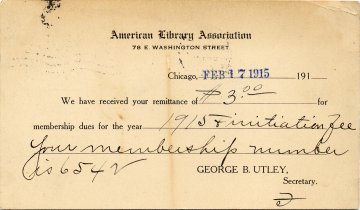 American Library Association
78 E. WASHINGTON STREET
Chicago, FEB 17 1915 191
We have received your remittance of $3.00 for
membership dues for the year 1915 & initiation fee
Your membership number
is 6542
GEORGE B. UTLEY,
Secretary.